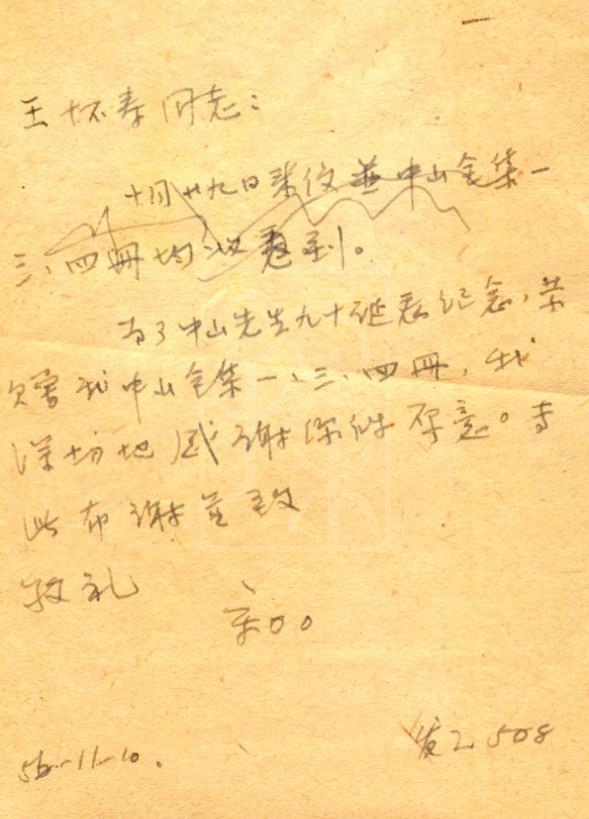 王怀寿同志：
十月廿九日来仪並中山全集一
三、四冊均收到。
为了中山先生九十诞辰纪念，荣
贈我中山全集一、三、四冊，我
深切地感谢你的厚意。专
此布谢並致
敬礼
宋〇〇
56-11-10.
发乙508